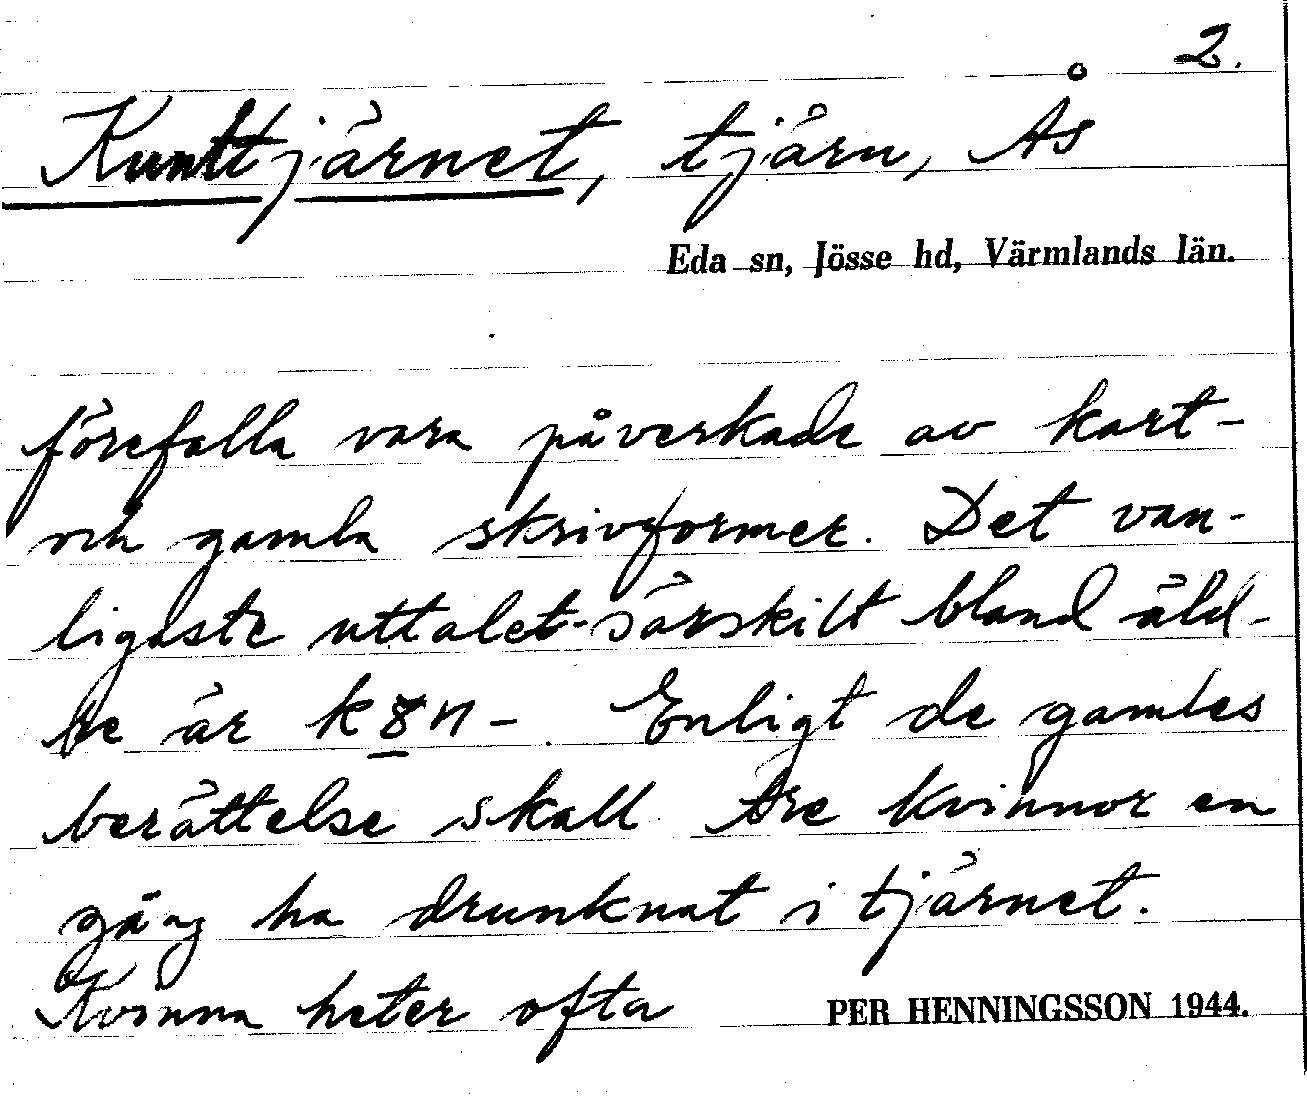 2.
Kunttjärnet, tjärn, Ås
Eda sn, Jösse hd, Värmlands län.
förefalla vara påverkade av kart-
och gamla skrivformer. Det van-
ligaste uttalet särskilt bland äld-
re är k8n-. Enligt de gamles
berättelse skall tre kvinnor en
gång ha drunknat i tjärnet.
Kvinna heter ofta
PER HENNINGSSON 1944.